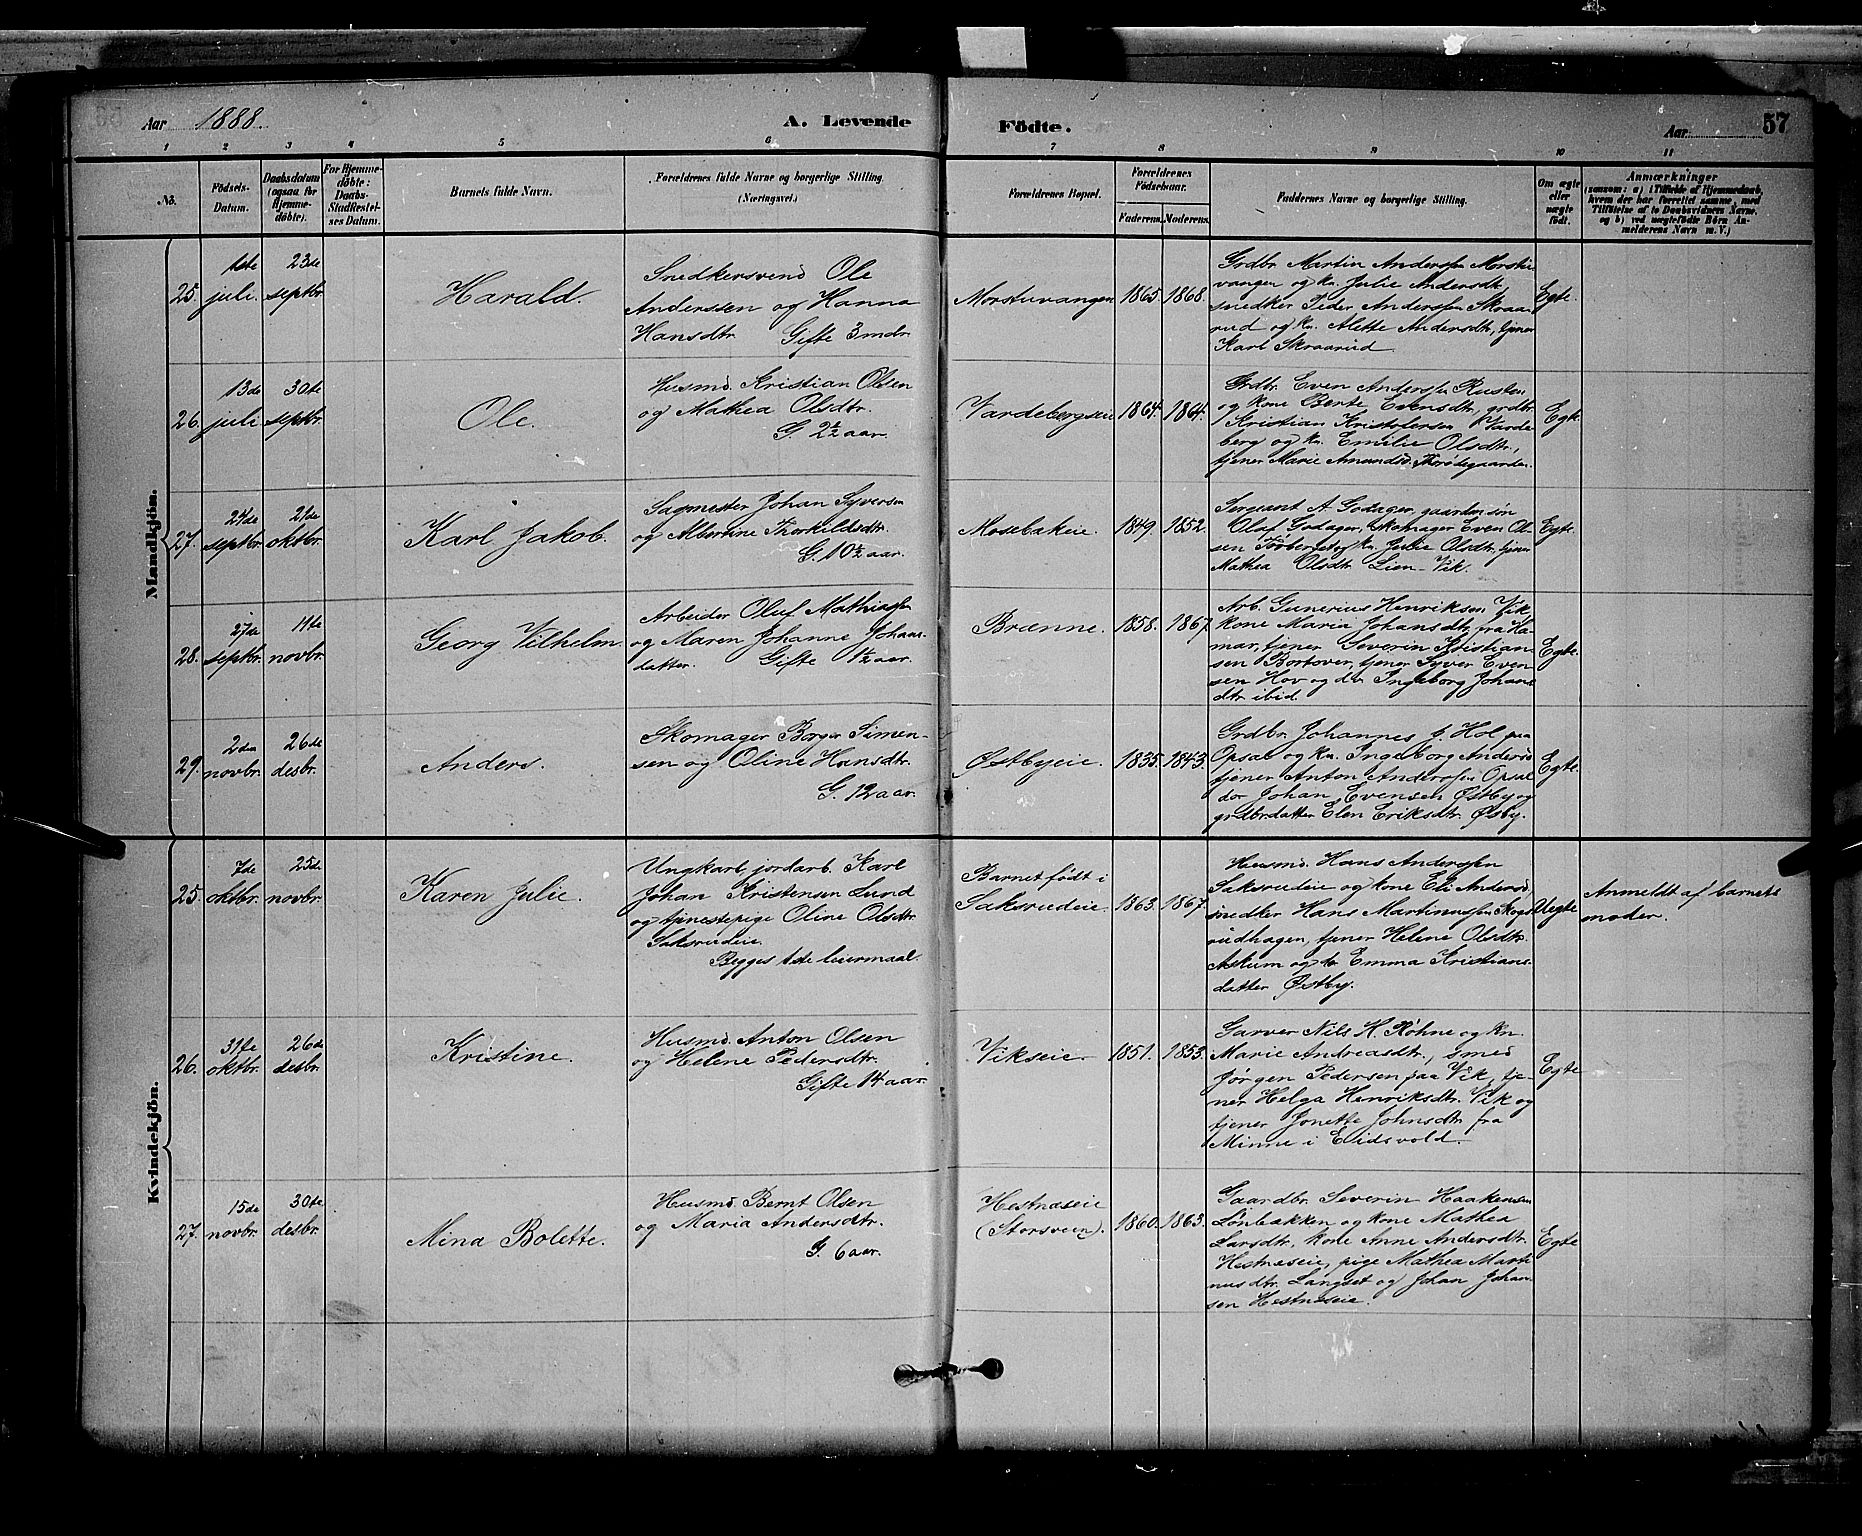 Aar 1888.
A. Levende
Födte.
Aar
57
1 2 3 4 5 6 7 8 9 10 11
No.
Födsels-
Datum.
Daabsdatum
(ogsaa for
Hjemme-
döbte).
For Hjemme-
döbte:
Daabs-
Stadfæstel-
ses Datum.
Barnets fulde Navn.
Forældrenes fulde Navne og borgerlige Stilling
(Næringsvei.)
Forældrenes Bopæl.
Forældrenes
Födselsaar.
Faderens.
Moderens.
Faddernes Navne og borgerlige Stilling.
Om ægte
eller
uægte
födt.
Anmærkninger
(saasom: a) i Tilfælde af Hjemmedaab,
hvem der har forrettet samme, med
Tilföielse af to Daabsvidners Navne,
og b) ved uægtefödte Börn An-
melderens Navn m. V.)
Mandkjön.
25.
1ste
juli.
23de
septbr.
Harald.
Snedkersvend Ole
Anderssen og Hanna
Hansdtr. Gifte 3 mdr.
Morstuvangen
1865.
1868.
Grdbr. Martin Anderssen Morstu-
vangen og kn. Julie Andersdtr.,
snedker Peder Anderssen Skraa-
rud og kn. Alette Andersdtr., tjener
Karl Skraarud.
Egte.
26.
13de
juli
30te
septbr.
Ole.
Husmd. Kristian Olsen
og Mathea Olsdtr.
G. 2½ aar.
Vardebergseie
1864.
1864.
Grdbr. Even Anderssen Rusten
og kone Berte Evensdtr., grdbr.
Kristian Kristofersen Varde-
berg og kn. Emilie Olsdtr.,
tjener Marie Amundsd.
Egte.
27.
24de
septbr.
21de
oktbr.
Karl Jakob.
Sagmester Johan Syversen
og Albertine Thorkildsdtr.
G. 10½ aar.
Mosebakeie.
1849.
1852.
Sergeant A. Godager, gaardmsön
Olaf Godager, skomager Even Ol-
sen Torberget og kn. Julie Olsdtr., tjener
Mathea Olsdtr. Lien-Vik.
Egte.
28.
27de
septbr.
11te
novbr.
Georg Vilhelm.
Arbeider Oluf Mathiassen
og Maren Johanne Johans-
datter. Gifte 1½ aar.
Brænne.
1858.
1867.
Arb. Gunerius Henriksen Vik,
kone Maria Johansdtr. fra Ha-
mar, tjener Severin Kristian-
sen Bortover, tjener Syver Even-
sen Hov og do Ingeborg Johans-
dtr. ibid.
Egte.
29.
2den
novbr.
26de
desbr.
Anders.
Skomager Borger Simen-
sen og Oline Hansdtr.
G. 12 aar.
Østbyeie.
1835.
1843.
Grdbr. Johannes p. Hol paa
Opsal og kn. Ingeborg Andersd.
tjener Anton Anderssen Opsal
do Johan Evensen Østby og
grdbr.datter Elen Eriksdtr. Østby.
Egte.
Kvindekjön.
25.
7de
oktbr.
25de
novbr.
Karen Julie.
Ungkarl, jordarb. Karl
Johan Kristensen Lund
og tjenestepige Oline Olsdtr.
Saksrudeie.
Begges 1ste leiermaal.
Barnet født i
Saksrudeie.
1863.
1867.
Husmd. Hans Anderssen
Saksrudeie og kone Eli Andersd.
snedker Hans Martinussen Skogs-
rudhagen, tjener Helene Olsdtr.
Askum og do Emma Kristians-
datter Østby.
Uegte
Anmeldt af barnets
moder.
26.
31te
oktbr.
26de
desbr.
Kristine.
Husmd. Anton Olsen
og Helene Pedersdtr.
Gifte 14 aar.
Vikseie.
1851.
1853.
Garver Nils H. Røhne og kn.
Marie Andreasdtr., smed
Jørgen Pedersen paa Vik, tje-
ner Helga Henriksdtr. Vik og
tjener Jonette Johnsdtr. fra
Minne i Eidsvold.
Egte
27.
15de
novbr.
30te
desbr.
Mina Bolette.
Husmd. Bernt Olsen
og Maria Andersdtr.
G. 6 aar.
Hestnæseie
(Storsveen).
1860.
1863.
Gaardbr. Severin Haakensen
Lönbakken og kone Mathea
Larsdtr., kone Anne Andersdtr.
Hestnæseie, pige Mathea Marti-
nusdtr. Langset og Johan Johan-
sen Hestnæseie.
Egte